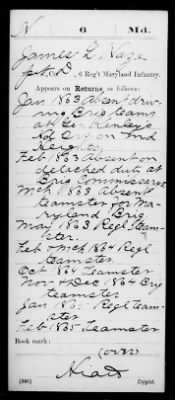 N 6 Md.
James L. Haze
pvt., Co. D, 6 Reg't Maryland Infantry.
Appears on Returns as follows:
Jan 1863 Absent driv-
ing Brig teams
at Gen Kenly's
Hd Qrs Md
Heights
Feb 1863 Absent on
detached duty at
Brig Commissary
Mch 1863 Absent
teamster for Ma-
ryland Brig
May 1863 Regl Team-
ster.
Feb & Mch 1864 Regl
teamster
Oct 1864 Teamster
Nov & Dec 1864 Brig
teamster
Jan 1865 Regl team-
ster
Feb 1865 teamster
Book mark:
(over)
Hiatt
(546) Copyist.